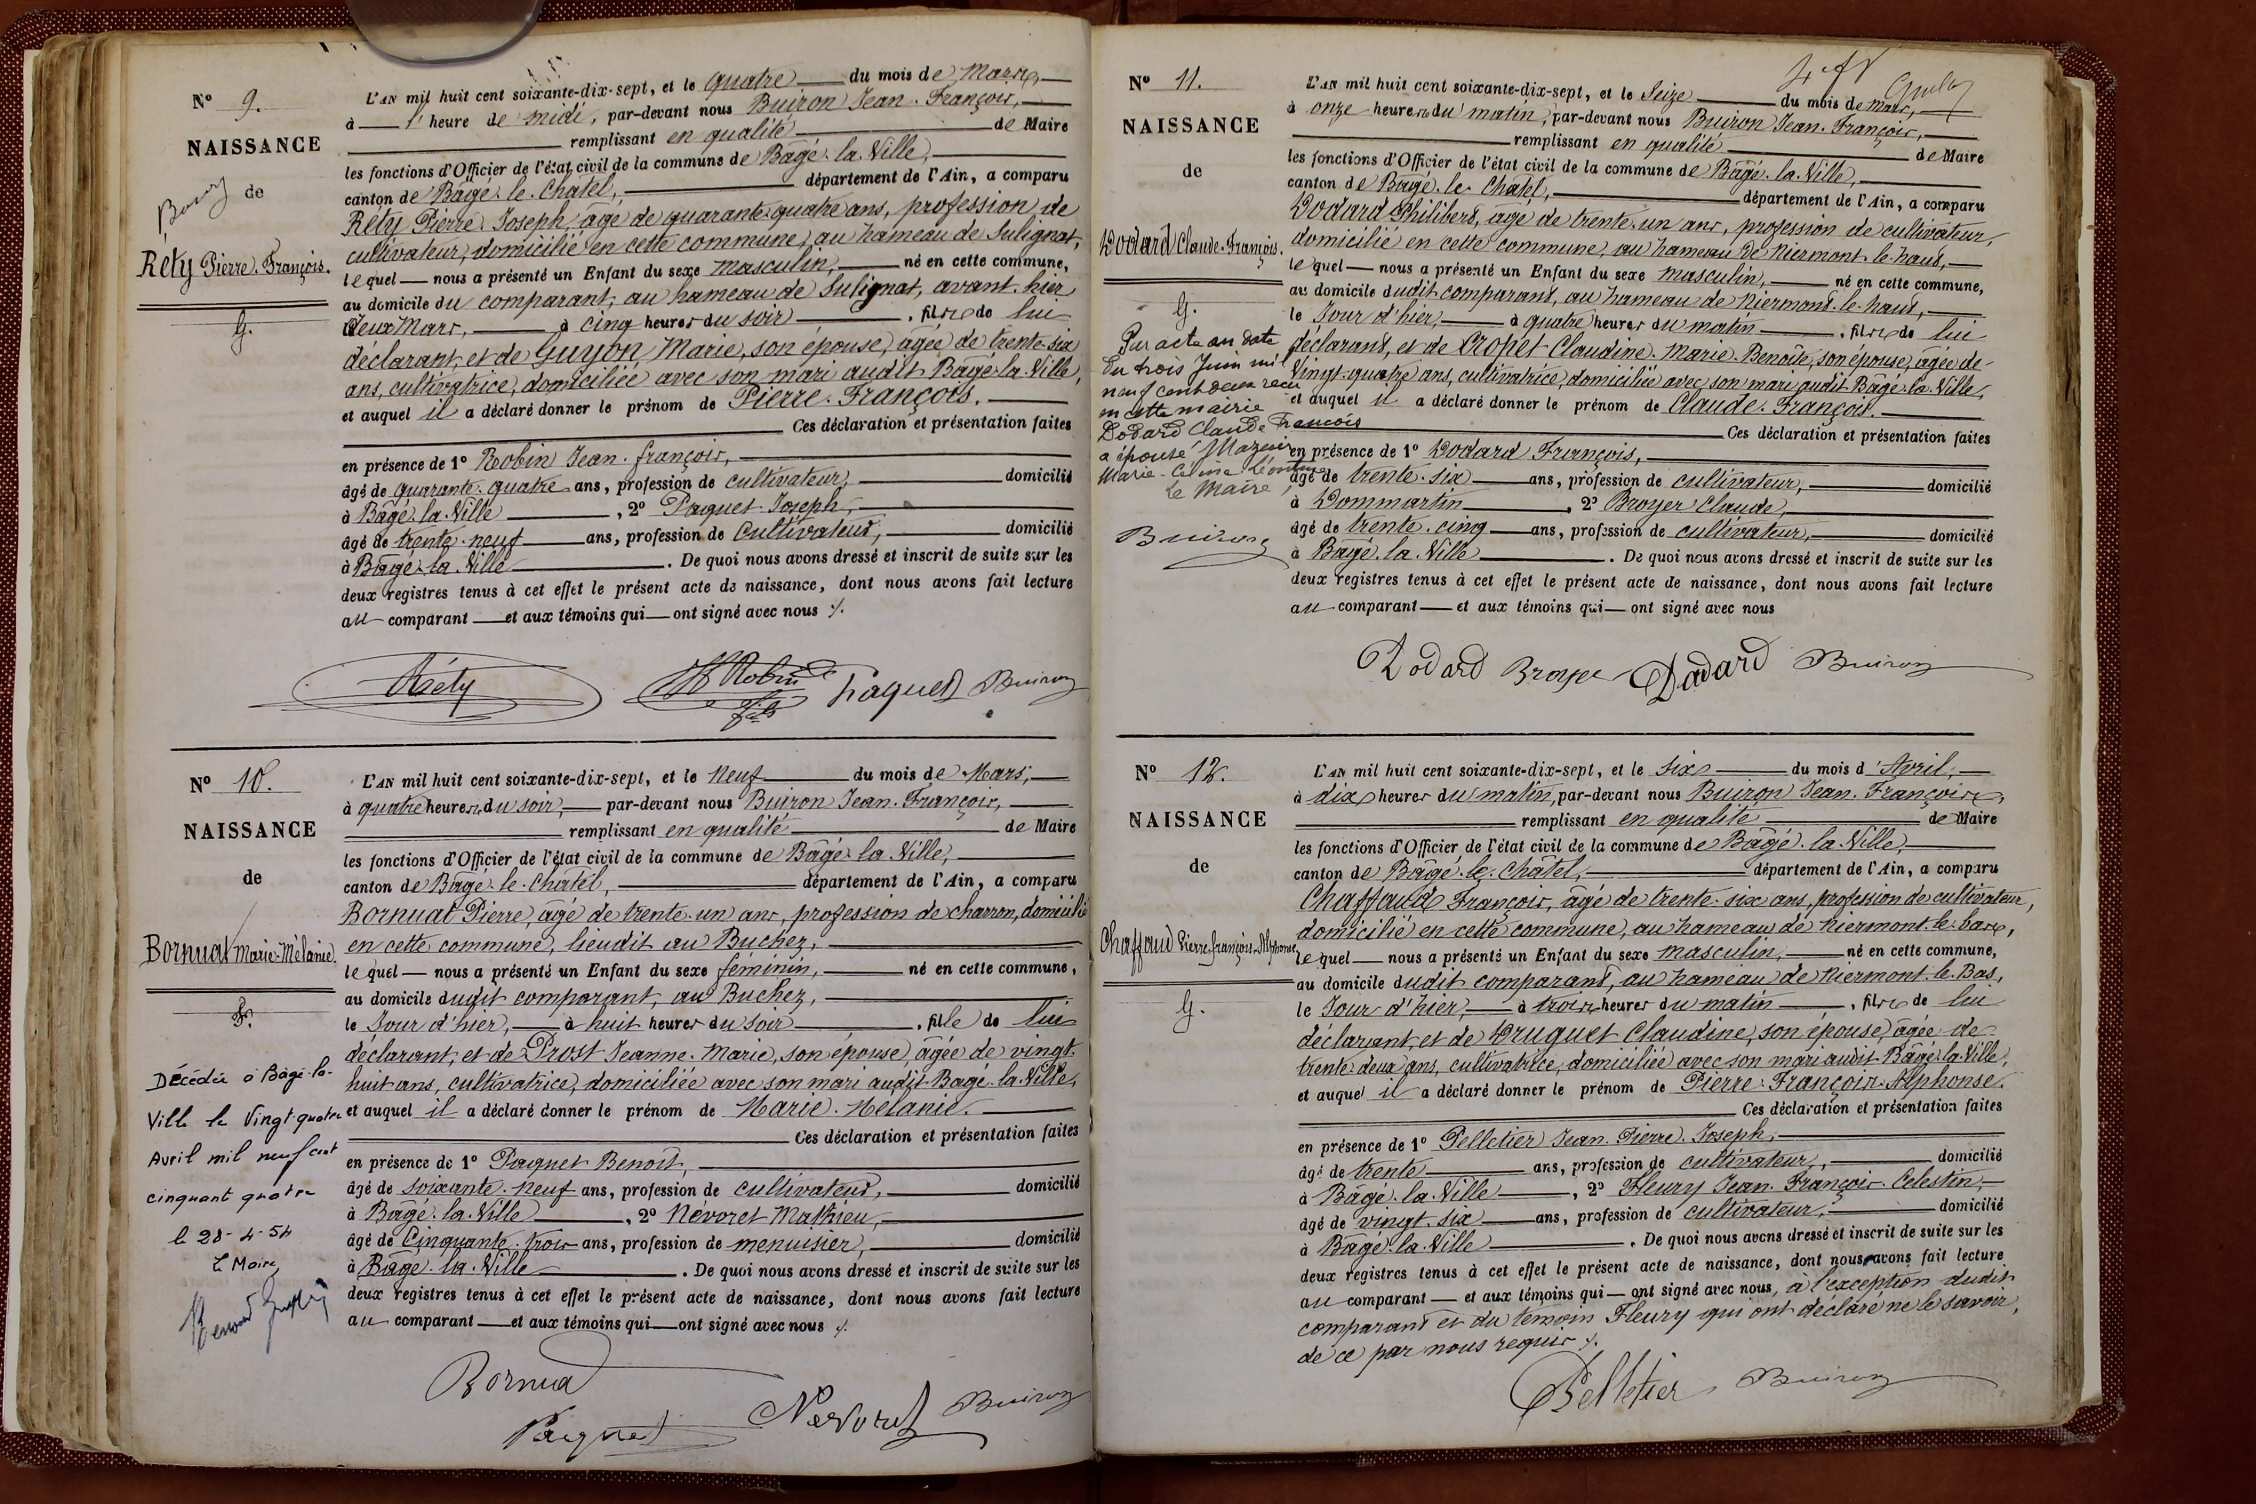 N° 9.
NAISSANCE
de
Réty Pierre-François.
G.
L'AN mil huit cent soixante-dix-sept, et le quatre du mois de Mars,
à l' heure de midi, par-devant nous Buiron Jean-François,
remplissant en qualité de Maire
les fonctions d'Officier de l'état civil de la commune de Bâgé-la-Ville,
canton de Bâgé-le-Châtel, département de l'Ain, a comparu
Réty Pierre-Joseph, âgé de quarante-quatre ans, profession de
cultivateur, domicilié en cette commune, au hameau de Sulignat,
lequel nous a présenté un Enfant du sexe masculin, né en cette commune,
au domicile du comparant, au hameau de Sulignat, avant-hier
deux Mars, à cinq heures du soir, fils de lui
déclarant, et de Guyon Marie, son épouse, âgée de trente-six
ans, cultivatrice, domiciliée avec son mari audit Bâgé-la-Ville,
et auquel il a déclaré donner le prénom de Pierre-François.
Ces déclaration et présentation faites
en présence de 1° Robin Jean-françois,
âgé de quarante-quatre ans, profession de cultivateur, domicilié
à Bâgé-la-Ville, 2° Paquet Joseph,
âgé de trente-neuf ans, profession de Cultivateur, domicilié
à Bâgé-la-Ville. De quoi nous avons dressé et inscrit de suite sur les
deux registres tenus à cet effet le présent acte de naissance, dont nous avons fait lecture
au comparant et aux témoins qui ont signé avec nous ./.
Réty Robin fils Paquet Buiron
N° 10.
NAISSANCE
de
Bornuat Marie-Mélanie.
Décédée à Bâgé-la-
Ville le Vingt quatre
Avril mil neuf cent
cinquant quatre
le 28-4-54
Le Maire,
L'AN mil huit cent soixante-dix-sept, et le Neuf du mois de Mars,
à quatre heures du soir, par-devant nous Buiron Jean-François,
remplissant en qualité de Maire
les fonctions d'Officier de l'état civil de la commune de Bâgé-la-Ville,
canton de Bâgé-le-Châtel, département de l'Ain, a comparu
Bornuat Pierre, âgé de trente-un ans, profession de charron, domicilié
en cette commune, lieudit au Buchez,
lequel nous a présenté un Enfant du sexe féminin, né en cette commune,
au domicile dudit comparant, au Buchez,
le Jour d'hier, à huit heures du soir, fille de lui
déclarant, et de Prost Jeanne-Marie, son épouse, âgée de vingt-
huit ans, cultivatrice, domiciliée avec son mari audit Bâgé-la-Ville,
et auquel il a déclaré donner le prénom de Marie-Mélanie.
Ces déclaration et présentation faites
en présence de 1° Paquet Benoît,
âgé de soixante-neuf ans, profession de cultivateur, domicilié
à Bâgé-la-Ville, 2° Nevoret Mathieu,
âgé de Cinquante-trois ans, profession de menuisier, domicilié
à Bâgé-la-Ville. De quoi nous avons dressé et inscrit de suite sur les
deux registres tenus à cet effet le présent acte de naissance, dont nous avons fait lecture
au comparant et aux témoins qui ont signé avec nous ./.
Bornua
Paquet Nevoret Buiron
N° 11.
NAISSANCE
de
Dodard Claude-François.
G.
Par acte en date
du trois Juin mil
neuf cent deux reçu
en cette mairie
Dodard Claude François
a épousé Mazuir
Marie-Célina
Le Maire,
Buiron
L'AN mil huit cent soixante-dix-sept, et le Seize du mois de Mars,
à onze heures du matin, par-devant nous Buiron Jean-François,
remplissant en qualité de Maire
les fonctions d'Officier de l'état civil de la commune de Bâgé-la-Ville,
canton de Bâgé-le-Châtel, département de l'Ain, a comparu
Dodard Philibert, âgé de trente-un ans, profession de cultivateur,
domicilié en cette commune, au hameau de Niermont-le-haut,
lequel nous a présenté un Enfant du sexe masculin, né en cette commune,
au domicile dudit comparant, au hameau de Niermont-le-haut,
le Jour d'hier, à quatre heures du matin, fils de lui
déclarant, et de Cropet Claudine-Marie-Benoîte, son épouse, âgée de
Vingt-quatre ans, cultivatrice, domiciliée avec son mari audit Bâgé-la-Ville,
et auquel il a déclaré donner le prénom de Claude-François.
Ces déclaration et présentation faites
en présence de 1° Dodard François,
âgé de trente-six ans, profession de cultivateur, domicilié
à Dommartin, 2° Broyer Claude,
âgé de trente-cinq ans, profession de cultivateur, domicilié
à Bâgé-la-Ville. De quoi nous avons dressé et inscrit de suite sur les
deux registres tenus à cet effet le présent acte de naissance, dont nous avons fait lecture
au comparant et aux témoins qui ont signé avec nous
Dodard Broyer Dodard Buiron
N° 12.
NAISSANCE
de
Chaffaud Pierre-françois-Alphonse
G.
L'AN mil huit cent soixante-dix-sept, et le six du mois d'Avril,
à dix heures du matin, par-devant nous Buiron Jean-François,
remplissant en qualité de Maire
les fonctions d'Officier de l'état civil de la commune de Bâgé-la-Ville,
canton de Bâgé-le-Châtel, département de l'Ain, a comparu
Chaffaud François, âgé de trente-six ans, profession de cultivateur,
domicilié en cette commune, au hameau de Niermont-le-bas,
lequel nous a présenté un Enfant du sexe masculin, né en cette commune,
au domicile dudit comparant, au hameau de Niermont-le-Bas,
le Jour d'hier, à trois heures du matin, fils de lui
déclarant, et de Druguet Claudine, son épouse, âgée de
trente-deux ans, cultivatrice, domiciliée avec son mari audit Bâgé-la-Ville,
et auquel il a déclaré donner le prénom de Pierre-François-Alphonse.
Ces déclaration et présentation faites
en présence de 1° Pelletier Jean-Pierre-Joseph,
âgé de trente ans, profession de cultivateur, domicilié
à Bâgé-la-Ville, 2° Fleury Jean-François-Celestin,
âgé de vingt-six ans, profession de cultivateur, domicilié
à Bâgé-la-Ville. De quoi nous avons dressé et inscrit de suite sur les
deux registres tenus à cet effet le présent acte de naissance, dont nous avons fait lecture
au comparant et aux témoins qui ont signé avec nous, à l'exception dudit
comparant et du témoin Fleury qui ont déclaré ne le savoir,
de ce par nous requis ./.
Pelletier Buiron